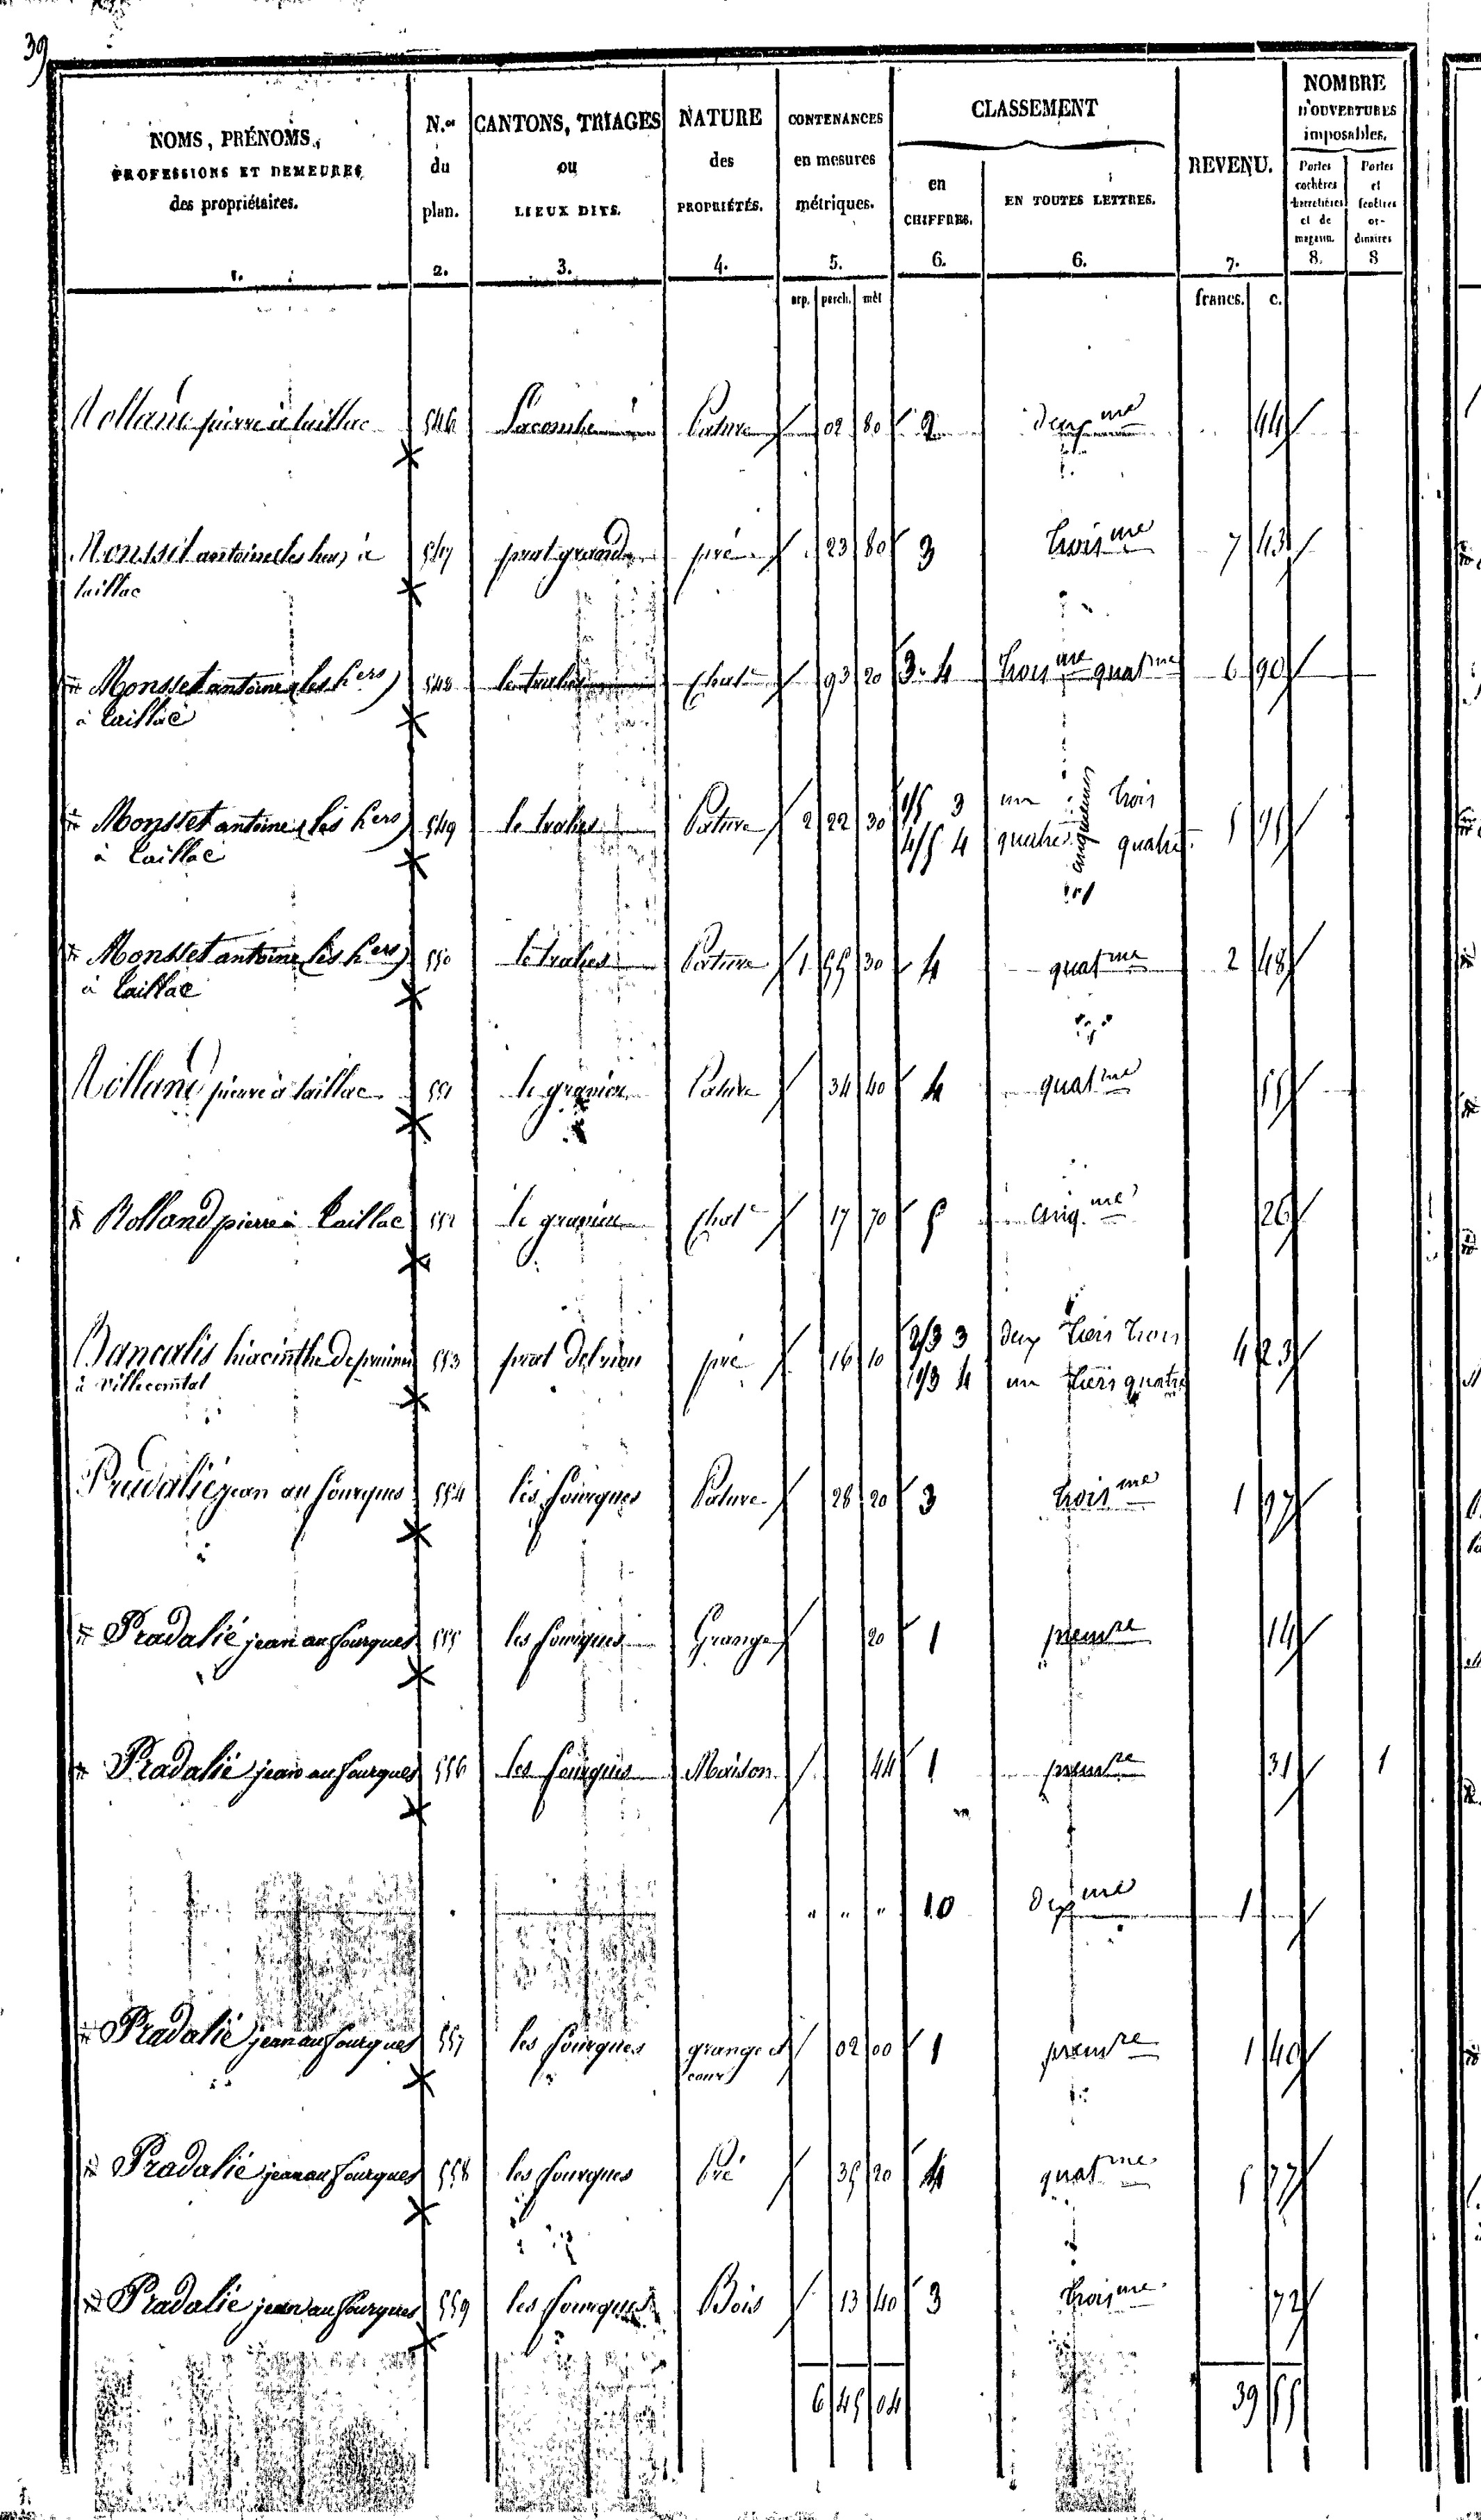 39
NOMS, PRÉNOMS,
PROFESSIONS ET DEMEURES
des propriétaires.
1.
N.os
du
plan.
2.
CANTONS, TRIAGES
ou
LIEUX DITS.
3.
NATURE
des
PROPRIÉTÉS.
4.
CONTENANCES
en mesures
métriques.
5.
CLASSEMENT
en
CHIFFRES.
6.
EN TOUTES LETTRES.
6.
REVENU.
7.
NOMBRE
D'OUVERTURES
imposables.
Portes
cochères
charretières
et de
magasin.
8.
Portes
et
fenêtres
or-
dinaires
8
arp. perch. mèt francs. c.
Rolland pierre à taillac 546 Lacombe Pature 02 80 2 deux me 44
antoine les hers à 547 prat grand pré 23 80 3 trois me 7 43
taillac
Mousset antoine (les hers) 548 93 20 3-4 trois me quat me 6 90
à taillac
Mousset antoine (les hers) 549 Pature 2 22 30 1/5 3 un cinquièmes trois
à taillac 4/5 4 quatre quatre
Mousset antoine (les hers) 550 Pature 1 55 30 4 quat me 2 48
à taillac
Rolland pierre à taillac 551 le gravier Pature 34 40 4 quat me 55
Rolland pierre à taillac 552 le gravier 17 70 5 cinq. me 26
Bancalis hiacinthe de 553 prat del riou pré 16 10 2/3 3 deux tiers trois 4 23
à Villecomtal 1/3 4 un tiers quatre
Pradalié jean au fourques 554 les fourques Pature 28 20 3 trois me 1 97
Pradalié jean au fourques 555 les fourques Grange 20 1 prem re 14
Pradalié jean au fourques 556 les fourques Maison 44 1 prem re 31 1
" " " 10 dix me 1
Pradalié jean au fourques 557 les fourques grange et 02 00 1 prem re 1 40
cour
Pradalié jean au fourques 558 les fourques Pré 35 20 4 quat me 5 77
Pradalié jean au fourques 559 les fourques Bois 13 40 3 trois me 72
6 45 04 39 55